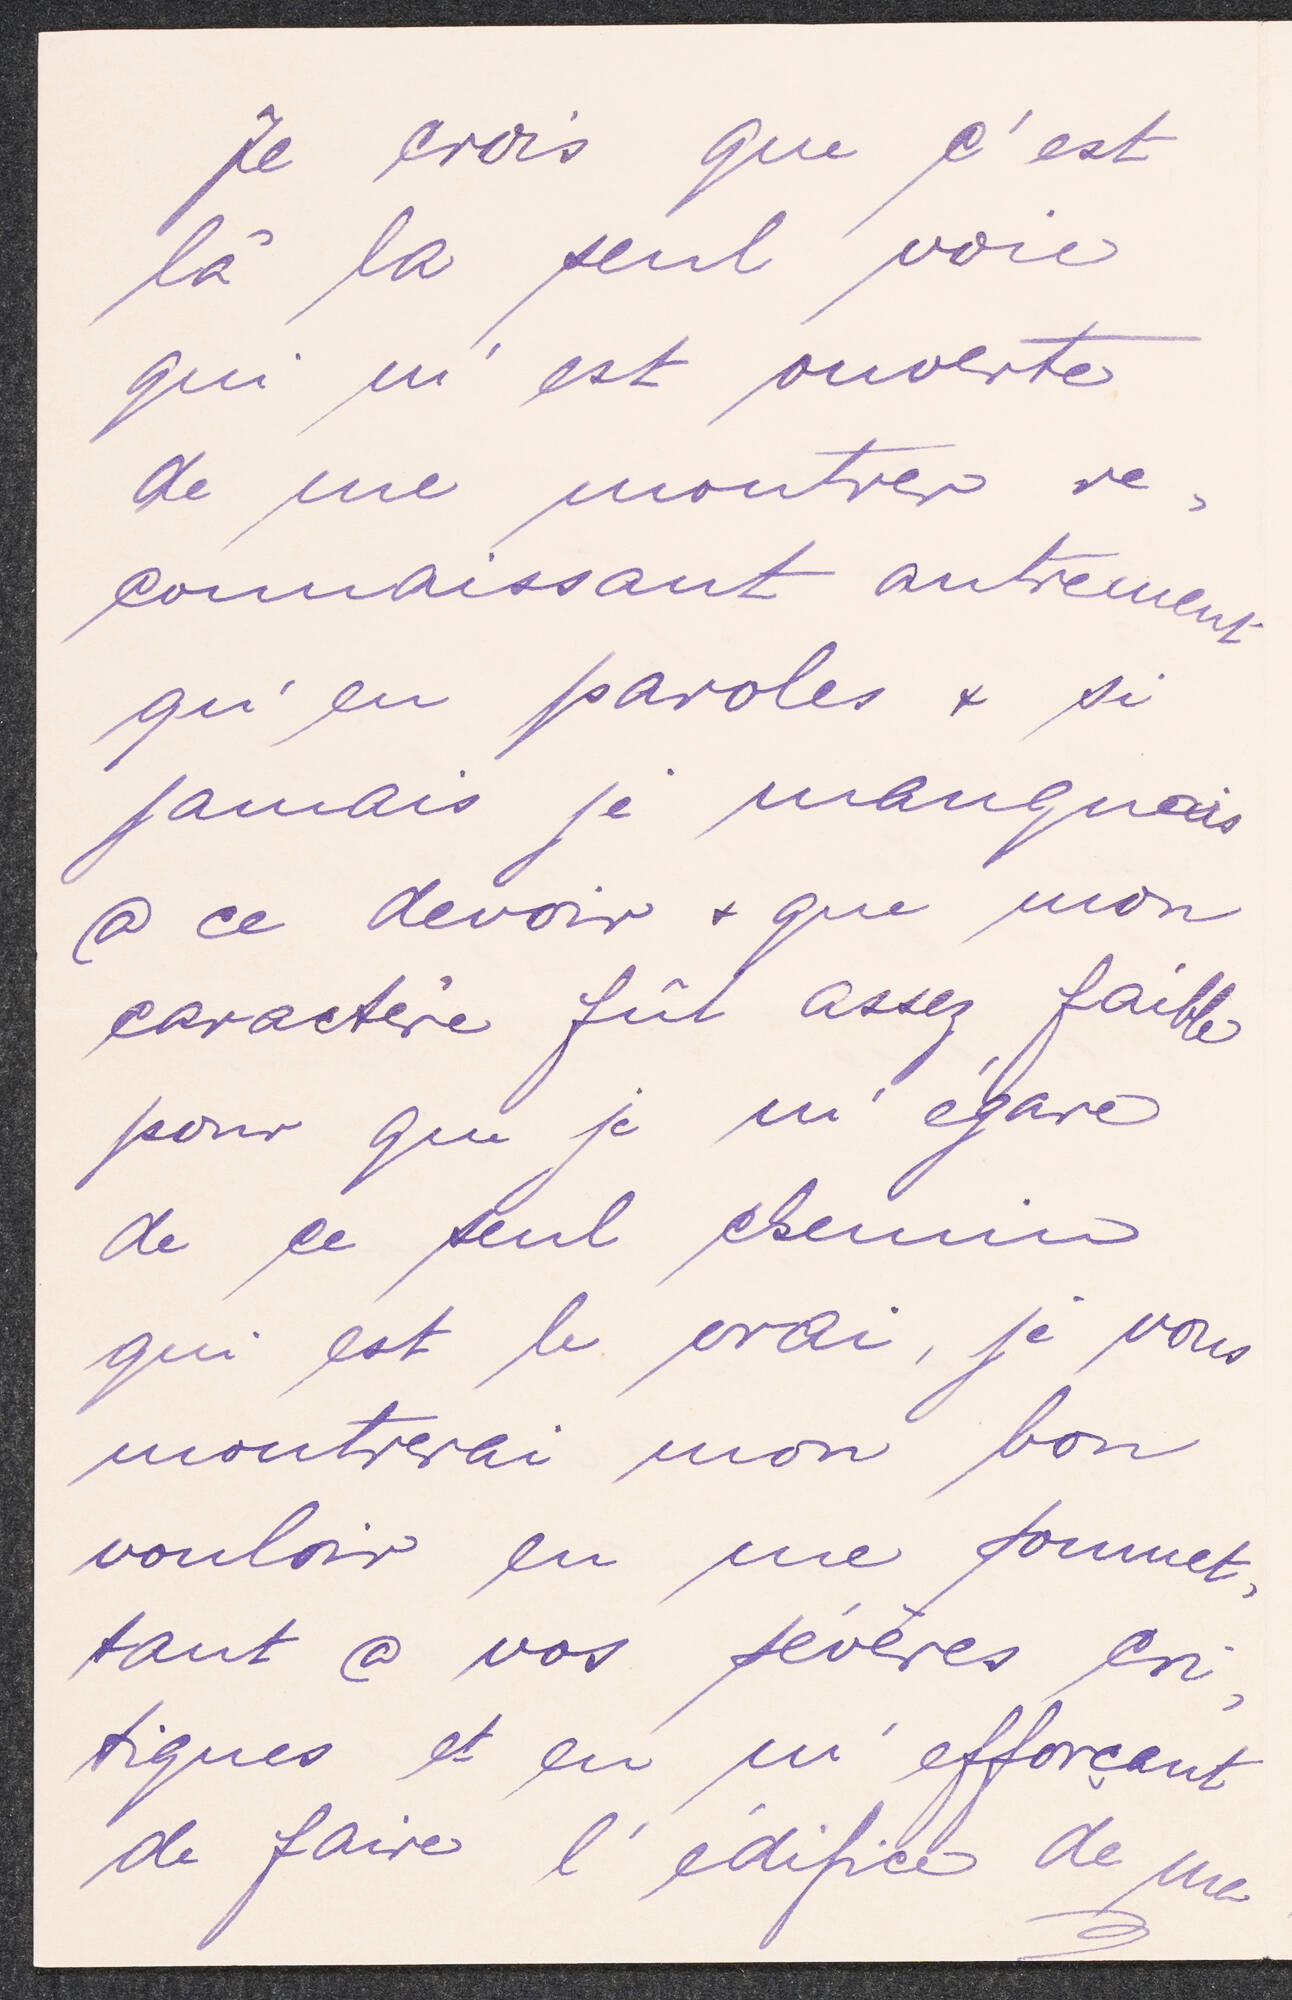 Je crois que c'est
là la seul voie
qui m'est ouverte
de me montrer re,
connaissant autrement
qu'en paroles & si
jamais je manquais
@ ce devoir & que mon
caractère fût assez faible
pour que je m'égare
de ce seul chemin
qui est le vrai, je vous
montrerai mon bon
vouloir en me soumet,
tant @ vos sévères cri,
tiques et en m'efforçant
de faire l'édifice de ma